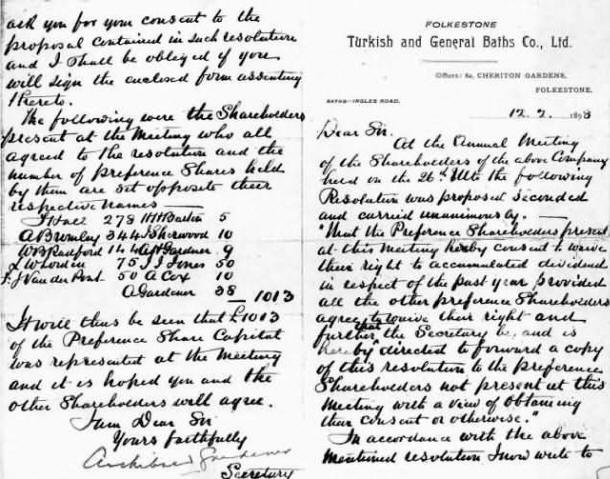 FOLKESTONE
Turkish and General Baths Co., Ltd.
Offices: 8a, CHERITON GARDENS,
FOLKESTONE.
BATHS—INGLES ROAD.
12. 2. 1898
Dear Sir.
At the Annual Meeting
of the Shareholders of the above Company
held on the 26th Ulto the following
Resolution was proposed seconded
and carried unanimously. —
"That the Preference Shareholders present
at this Meeting hereby consent to waive
their right to accumulated dividend
in respect of the past year provided
all the other preference Shareholders
agree to waive their right and
further that the Secretary be, and is
hereby directed to forward a copy
of this resolution to the preference
Shareholders not present at this
Meeting with a view of obtaining
their consent or otherwise."
In accordance with the above
mentioned resolution I now write to
ask you for your consent to the
proposal contained in such resolution
and I shall be obliged if you
will sign the enclosed form assenting
thereto.
The following were the Shareholders
present at the Meeting who all
agreed to the resolution and the
number of preference Shares held
by them are set opposite their
respective names —
J Hall 278 HH Barton 5
A Bromley 344 J Sherwood 10
WB Radford 144 Gardner 9
LW Lordin 75 J J Jones 50
F. J Van der Pant 50 A Cox 10
A Gardener 38 — 1013
It will thus be seen that £1013
of the Preference Share Capital
was represented at the Meeting
and it is hoped you and the
other Shareholders will agree.
I am Dear Sir
Yours faithfully
Archibald Gardener
Secretary